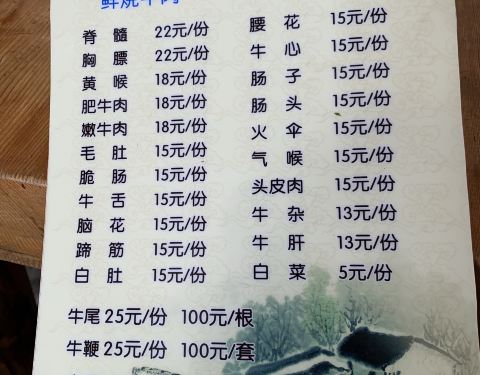 鲜烧牛肉
脊髓 22元/份
胸膘 22元/份
黄喉 18元/份
肥牛肉 18元/份
嫩牛肉 18元/份
毛肚 15元/份
脆肠 15元/份
牛舌 15元/份
脑花 15元/份
蹄筋 15元/份
白肚 15元/份
腰花 15元/份
牛心 15元/份
肠子 15元/份
肠头 15元/份
火伞 15元/份
气喉 15元/份
头皮肉 15元/份
牛杂 13元/份
牛肝 13元/份
白菜 5元/份
牛尾 25元/份 100元/根
牛鞭 25元/份 100元/套